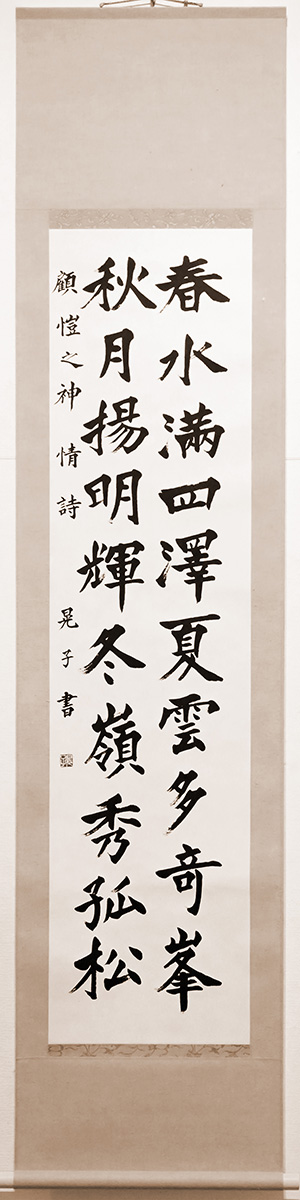 春水満四澤夏雲多奇峯
秋月揚明輝冬嶺秀孤松
顧愷之神情詩 晃子書